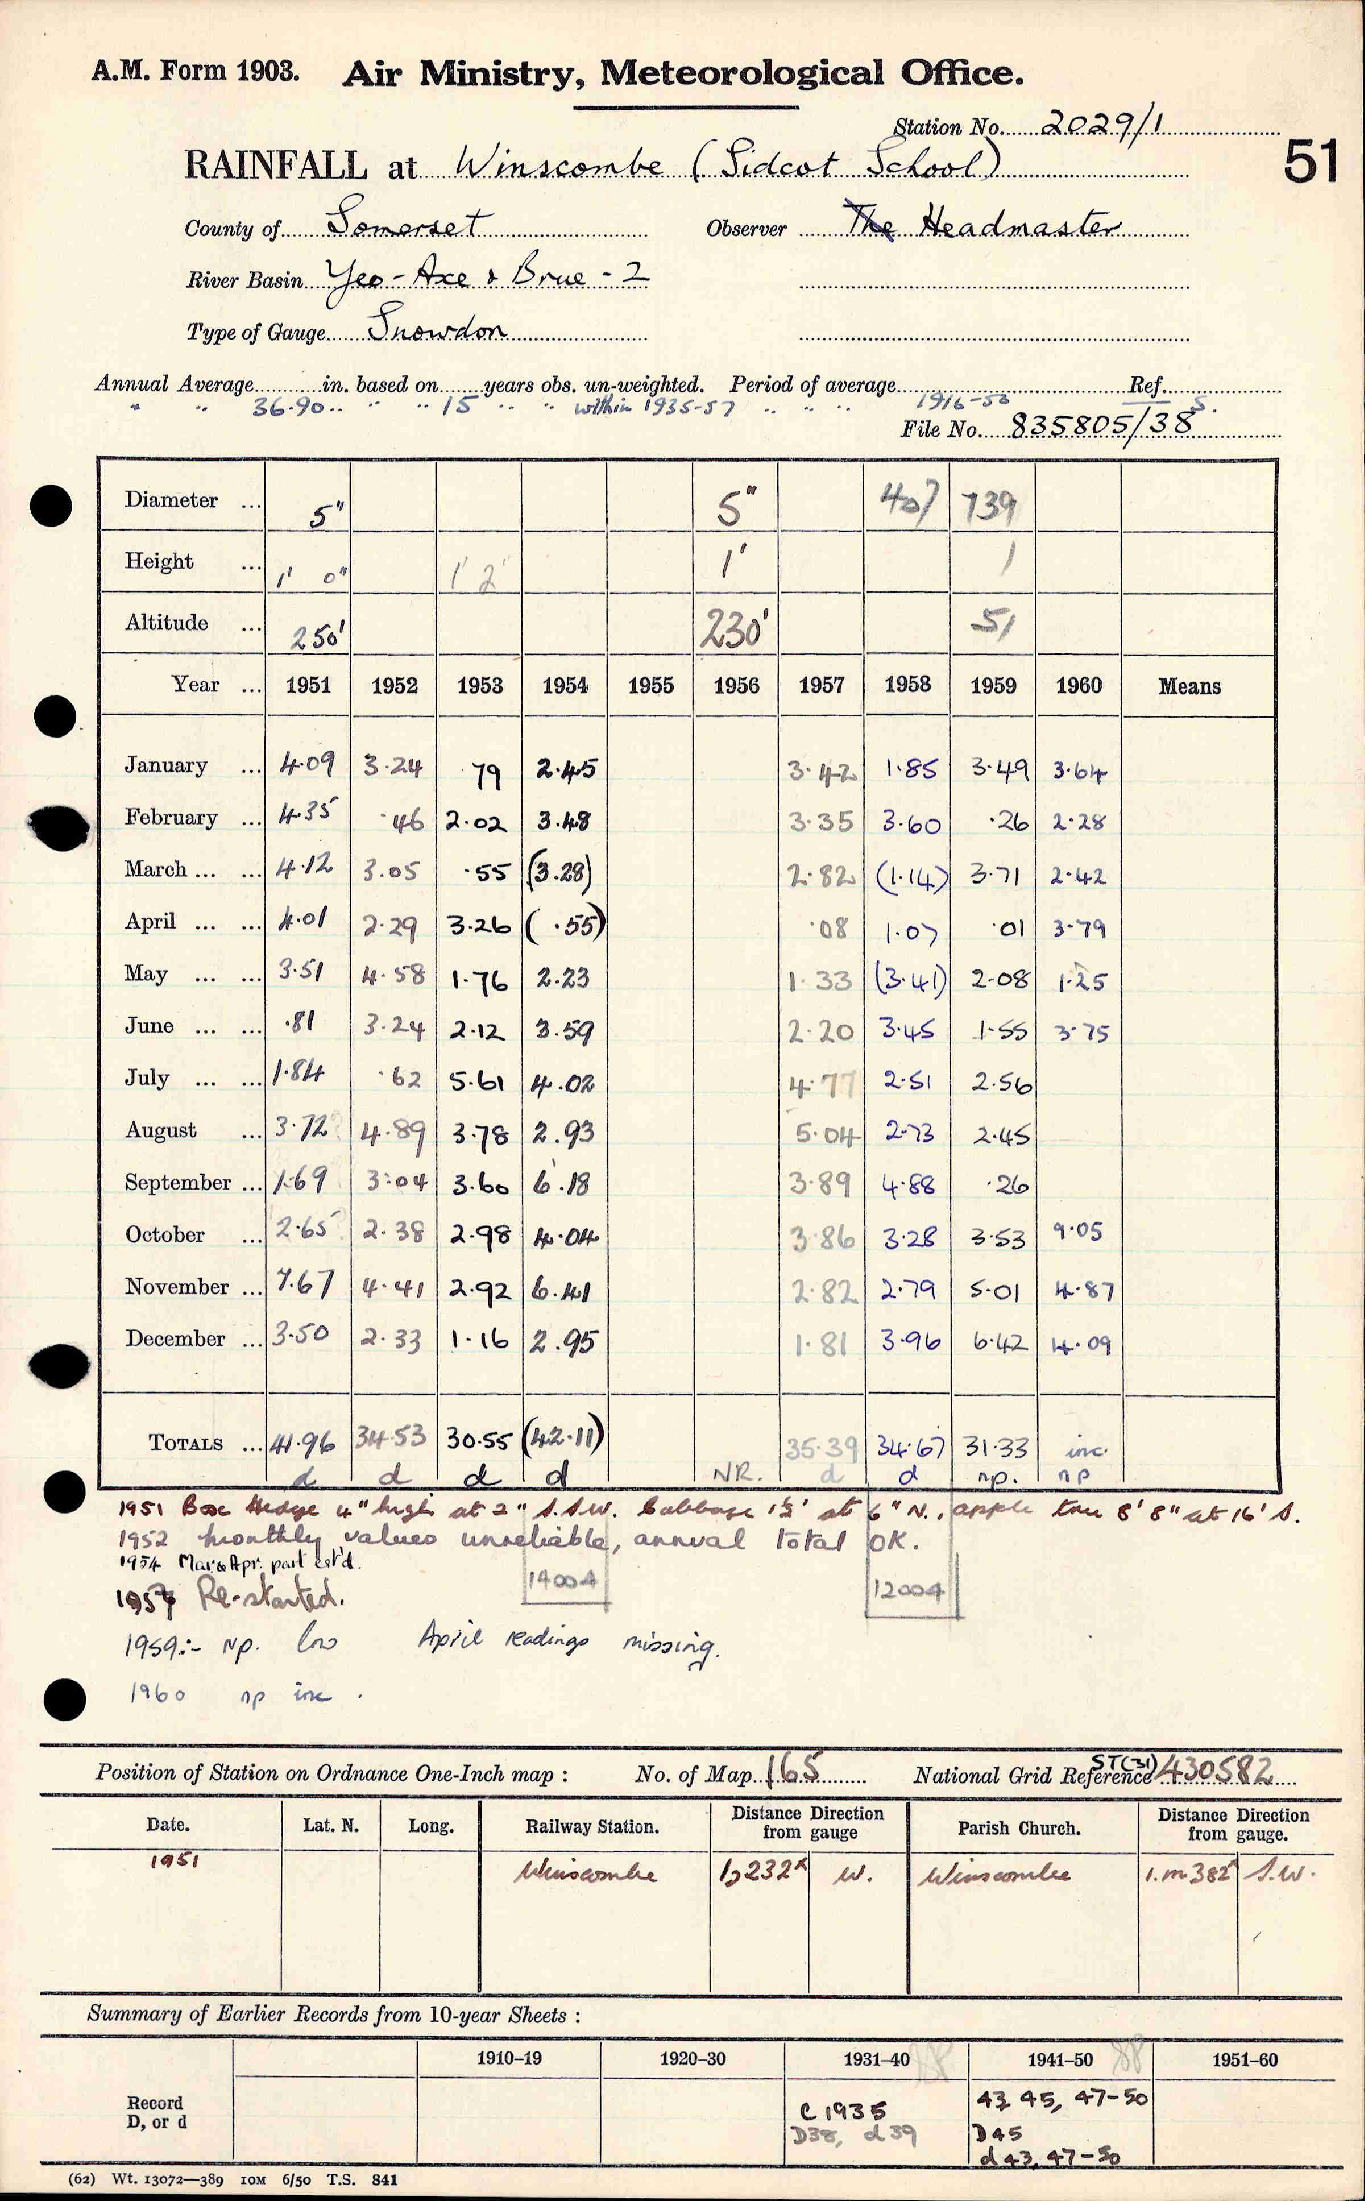 A.M. Form 1903. Air Ministry, Meteorological Office.
Station No. 2029/1
RAINFALL at Winscombe (Sidcot School)
51
County of Somerset Observer The Headmaster
River Basin Yeo-Axe & Brue - 2
Type of Gauge Snowdon
Annual Average in. based on years obs. un-weighted. Period of average Ref.
" " 36.90 " " 15 " " within 1935-57 " " " 1916-50 S.
File No. 835805/38
Diameter ... 5" 5" 407 739
Height ... 1' 0" 1' 2" 1' 1
Altitude ... 250' 230' 51
Year ... 1951 1952 1953 1954 1955 1956 1957 1958 1959 1960 Means
January ... 4.09 3.24 79 2.45 3.42 1.85 3.49 3.64
February ... 4.35 .46 2.02 3.48 3.35 3.60 .26 2.28
March ... ... 4.12 3.05 .55 (3.28) 2.82 (1.14) 3.71 2.42
April ... ... 4.01 2.29 3.26 ( .55) .08 1.07 .01 3.79
May ... ... 3.51 4.58 1.76 2.23 1.33 (3.41) 2.08 1.25
June ... ... .81 3.24 2.12 3.59 2.20 3.45 1.55 3.75
July ... ... 1.84 .62 5.61 4.02 4.77 2.51 2.56
August ... 3.72 4.89 3.78 2.93 5.04 2.73 2.45
September ... 1.69 3.04 3.60 6.18 3.89 4.88 .26
October ... 2.65 2.38 2.98 4.04 3.86 3.28 3.53 9.05
November ... 7.67 4.41 2.92 6.41 2.82 2.79 5.01 4.87
December ... 3.50 2.33 1.16 2.95 1.81 3.96 6.42 4.09
TOTALS ... 41.96 34.53 30.55 (42.11) 35.39 34.67 31.33 inc.
d d d d NR. d d np. np
1951 Box Hedge 4" high at 2" S.S.W. Cabbage 1½' at 6" N., apple tree 8' 8" at 16' S.
1952 monthly values unreliable, annual total OK.
1954 Mar & Apr. part est'd.
14004 12004
1957 Re-started.
1959:- np. low April readings missing.
1960 np inc.
Position of Station on Ordnance One-Inch map : No. of Map 165 National Grid Reference ST(31) 430582
Date. Lat. N. Long. Railway Station. Distance Direction from gauge Parish Church. Distance Direction from gauge.
1951 Winscombe 1,232x W. Winscombe 1.m 382x S.W.
Summary of Earlier Records from 10-year Sheets :
1910-19 1920-30 1931-40 1941-50 1951-60
Record D, or d
C 1935 43, 45, 47-50
D38, d39 D45
d 43, 47-50
(62) Wt. 13072—389 10M 6/50 T.S. 841